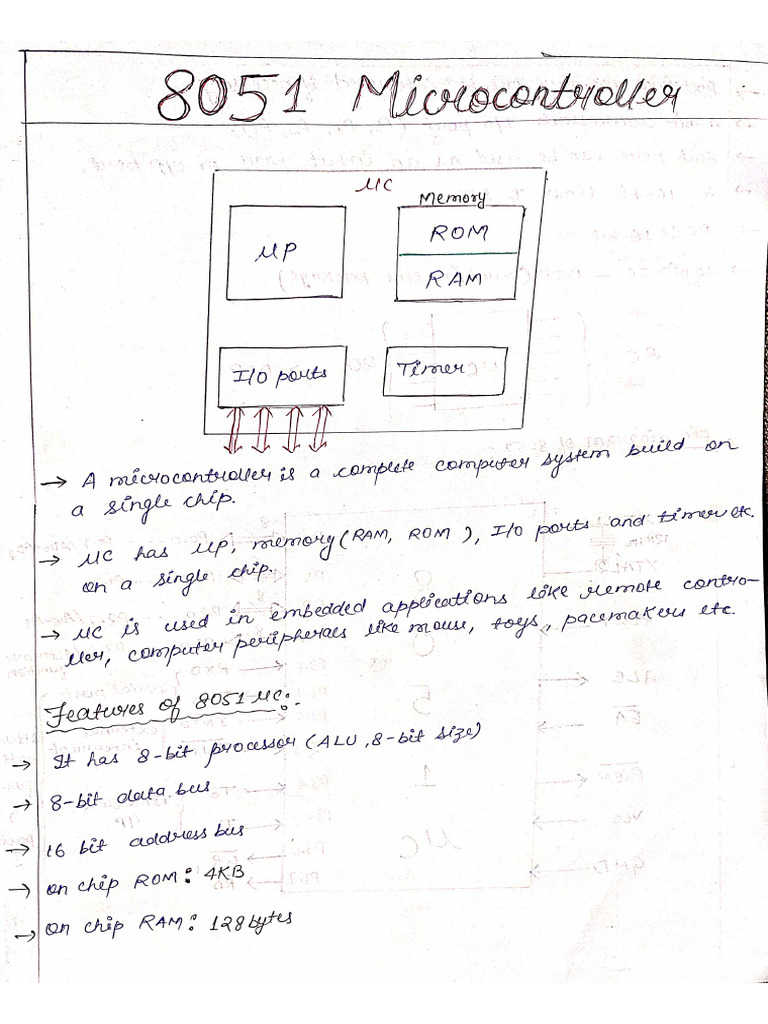 8051 Microcontroller
μC
Memory
μP
ROM
RAM
I/O ports
Timer
→ A microcontroller is a complete computer system build on
a single chip.
→ μC has μP, memory (RAM, ROM ), I/O ports and timer etc.
on a single chip.
→ μC is used in embedded applications like remote contro-
ller, computer peripherals like mouse, toys, pacemakers etc.
Features of 8051 μC:-
→ It has 8-bit processor (ALU, 8-bit size)
→ 8-bit data bus
→ 16 bit address bus
→ on chip ROM: 4KB
→ on chip RAM: 128 bytes